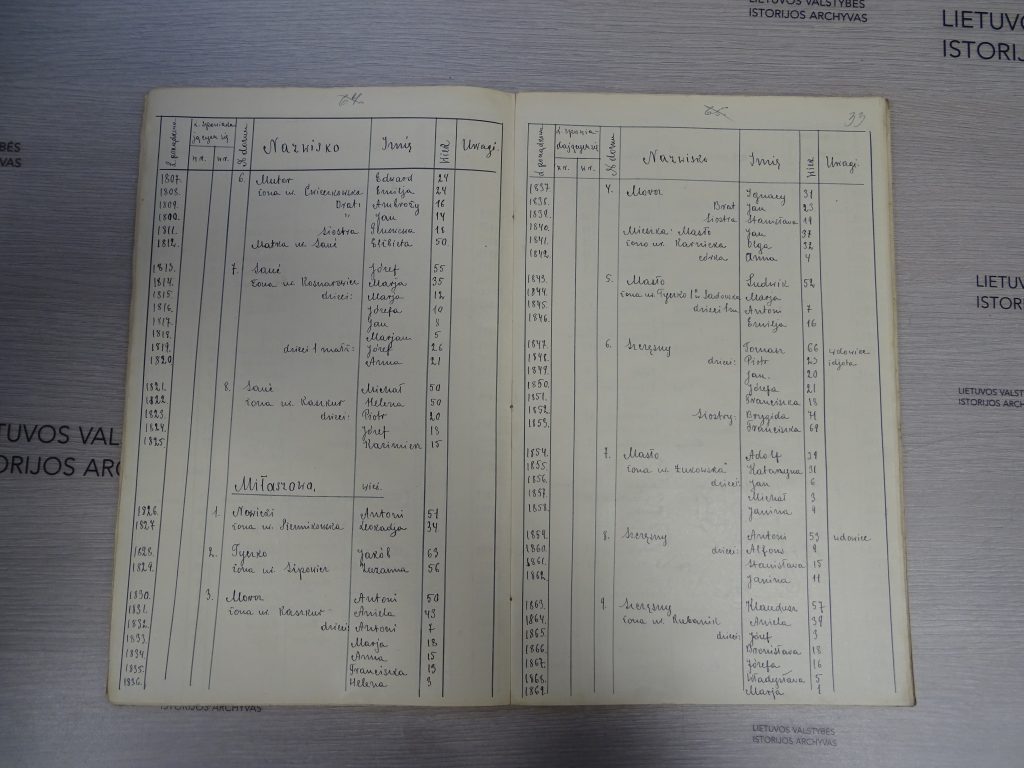 LIETUVOS VALSTYBĖS
ISTORIJOS ARCHYVAS
LIETUVOS
ISTORIJOS
64
L. porządkowa
L. spowiadających się
№ domu
Nazwisko
Imię
Wiek
Uwagi
w r. w r.
1807. 6. Mutor Edward 24
1808. żona ur. Ćwieczkowska Emilja 24
1809. Brat: Ambroży 16
1810. " Jan 14
1811. Siostra 18
1812. Matka ur. Sanć Elżbieta 50.
1813. 7. Sanć Józef 55
1814. żona ur. Marja 35
1815. dzieci: Marja 12
1816. Józefa 10
1817. Jan 8
1818. Marjan 5
1819. dzieci 1 małż: Józef 26
1820. Anna 21
1821. 8. Sanć Michał 50
1822. żona ur. Kaszkur Helena 50
1823. dzieci: Piotr 20
1824. Józef 18
1825. Kazimiera 15
Miłaszowo, wieś.
1826. 1. Nowicki Antoni 57
1827. żona ur. Leokadja 34
1828. 2. Tyczko Jakób 63
1829. żona ur. Zuzanna 56
1830. 3. Moroz Antoni 50
1831. żona ur. Kaszkur Aniela 43
1832. dzieci: Antoni 7
1833. Marja 18
1834. Anna 15
1835. Franciszka 13
1836. Helena 3
65
33
L. porządkowa
L. spowiadających się
№ domu
Nazwisko
Imię
Wiek
Uwagi
w r. w r.
1837 4. Moroz Ignacy 31
1838. Brat Jan 23
1839. Siostra Stanisława 19
1840. Mieszka: Masło Jan 37
1841. żona ur. Karnicka Olga 32
1842. córka Anna 4
1843. 5. Masło Ludwik 52
1844. żona ur. Tyczko 1° v. Sadowska Marja
1845. dzieci 1 m. Antoni 7
1846. Emilja 16
1847. 6. Szczęsny Tomasz 66 wdowiec
1848. dzieci: Piotr 23 idjota
1849. Jan 20
1850. Józefa 21
1851. Franciszka 18
1852. Siostry: Brygida 71
1853. Franciszka 69
1854. 7. Masło Adolf
1855. żona ur. Żukowska Katarzyna 31
1856. dzieci: Jan 6
1857. Michał 3
1858. Janina
1859. 8. Szczęsny Antoni 53 wdowiec
1860. dzieci: Alfons 9
1861. Stanisława 15
1862. Janina 11
1863. 9. Szczęsny Klaudusz 57
1864. żona ur. Rubanik Aniela 39
1865. dzieci: Józef 3
1866. Bronisława 18
1867. Józefa 16
1868. Władysława 5
1869. Marja 1
NĖS
VAS
LIETUVOS
ISTORIJOS
LIETUVOS VALSTYBĖS
ISTORIJOS ARCHYVAS
TUVOS VALS
TORIJOS ARCHY
ISTORIJOS ARCHYVAS
LIETUVOS VALSTYBĖS
ISTORIJOS ARCHYVAS